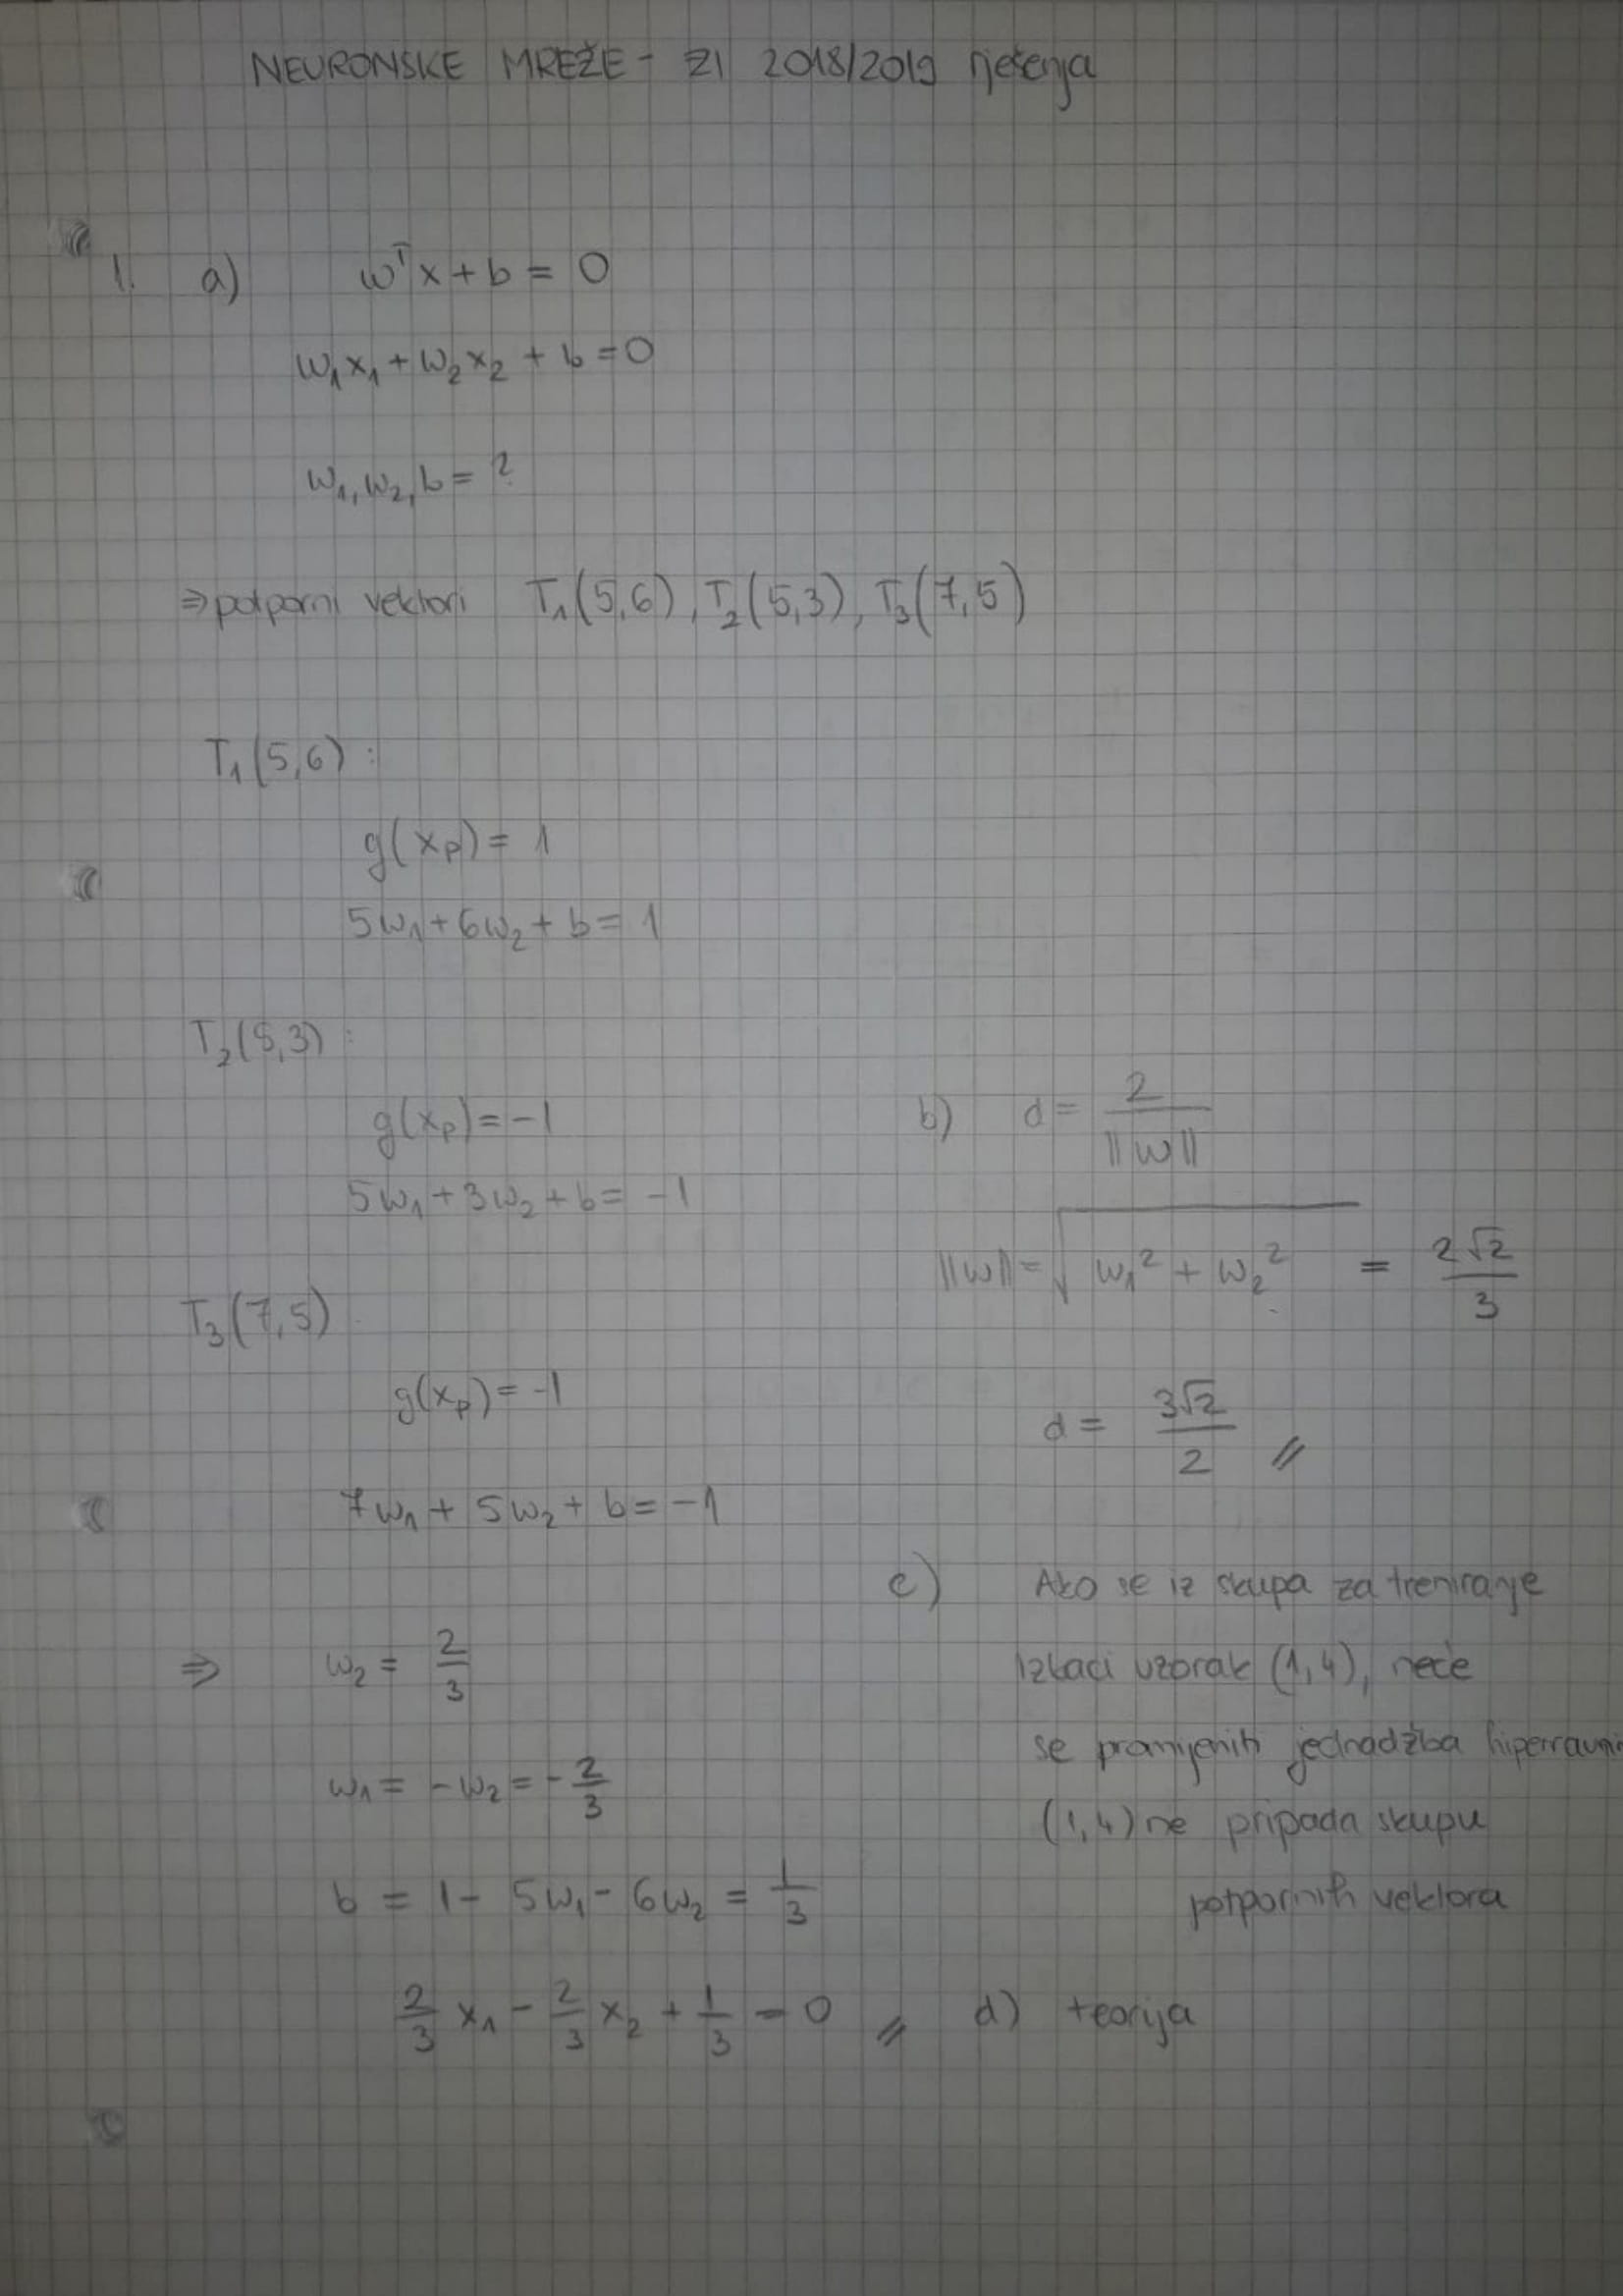 NEURONSKE MREŽE - ZI 2018/2019 rješenja
1. a) wᵀx + b = 0
w₁x₁ + w₂x₂ + b = 0
w₁, w₂, b = ?
⇒ potporni vektori T₁(5,6), T₂(5,3), T₃(7,5)
T₁(5,6) :
g(xₚ) = 1
5w₁ + 6w₂ + b = 1
T₂(5,3) :
g(xₚ) = -1
5w₁ + 3w₂ + b = -1
T₃(7,5)
g(xₚ) = -1
7w₁ + 5w₂ + b = -1
⇒ w₂ = 2/3
w₁ = -w₂ = -2/3
b = 1 - 5w₁ - 6w₂ = 1/3
2/3 x₁ - 2/3 x₂ + 1/3 = 0 //
b) d = 2/||w||
||w|| = √(w₁² + w₂²) = 2√2/3
d = 3√2/2 //
c) Ako se iz skupa za treniranje
izbaci uzorak (1,4), neće
se promijeniti jednadžba hiperravni
(1,4) ne pripada skupu
potpornih vektora
d) teorija